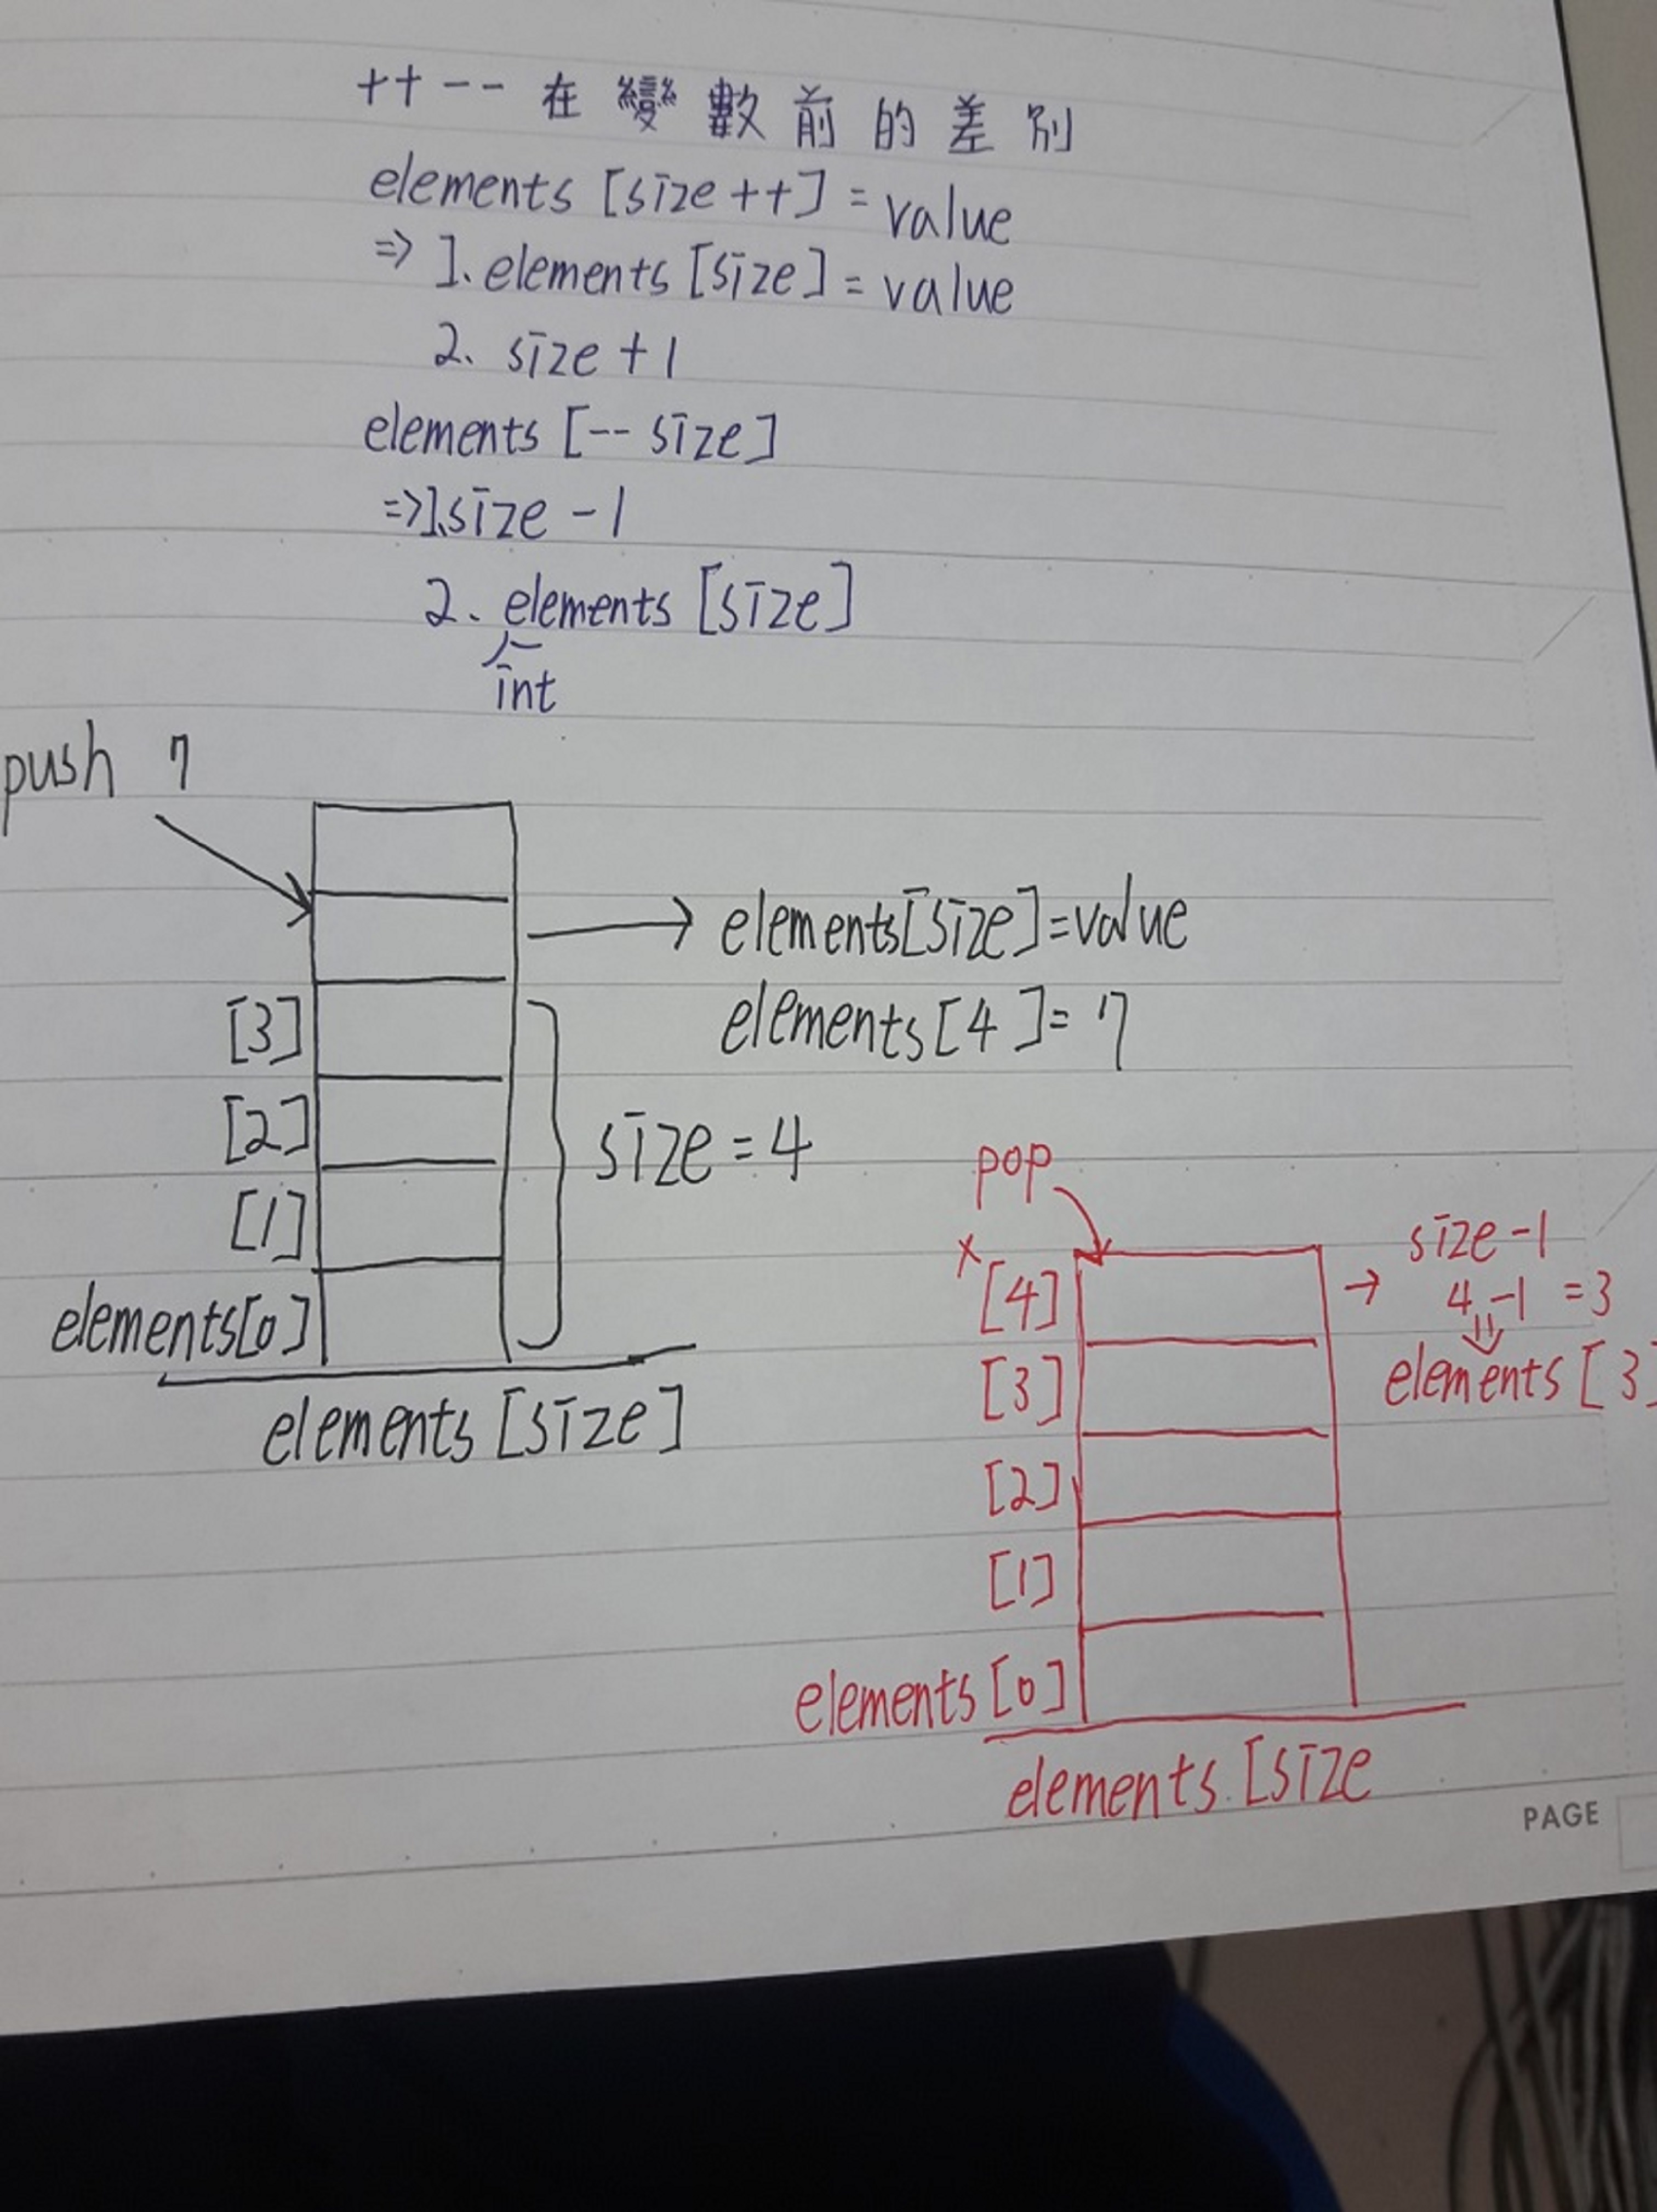 ++ -- 在變數前的差別
elements [size ++] = value
=> 1. elements [size] = value
2. size + 1
elements [-- size]
=> 1. size - 1
2. elements [size]
int
push 7
elements[size]=value
[3]
elements[4]= 7
[2]
size = 4
[1]
elements[0]
elements [size]
pop
size -1
x [4]
4 -1 = 3
[3]
elements [3]
[2]
[1]
elements [0]
elements [size
PAGE